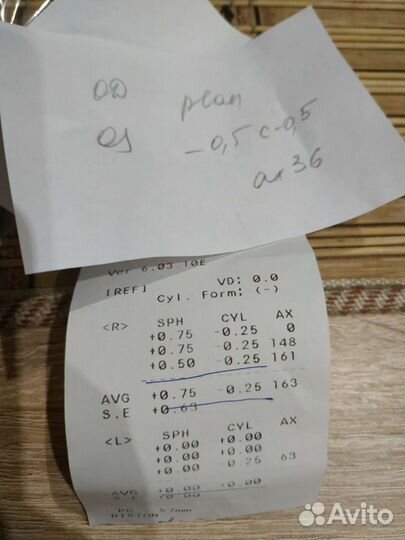 OD plan
OS -0,5 c-0,5
ax 36
Ver 6.03.10E
[REF] VD: 0.0
Cyl. Form: (-)
<R> SPH CYL AX
+0.75 -0.25 0
+0.75 -0.25 148
+0.50 -0.25 161
AVG +0.75 -0.25 163
S.E +0.63
<L> SPH CYL AX
+0.00 +0.00
+0.00 +0.00
+0.00 -0.25 63
AVG +0.00 +0.00
S.E +0.00
DIXION
Avito